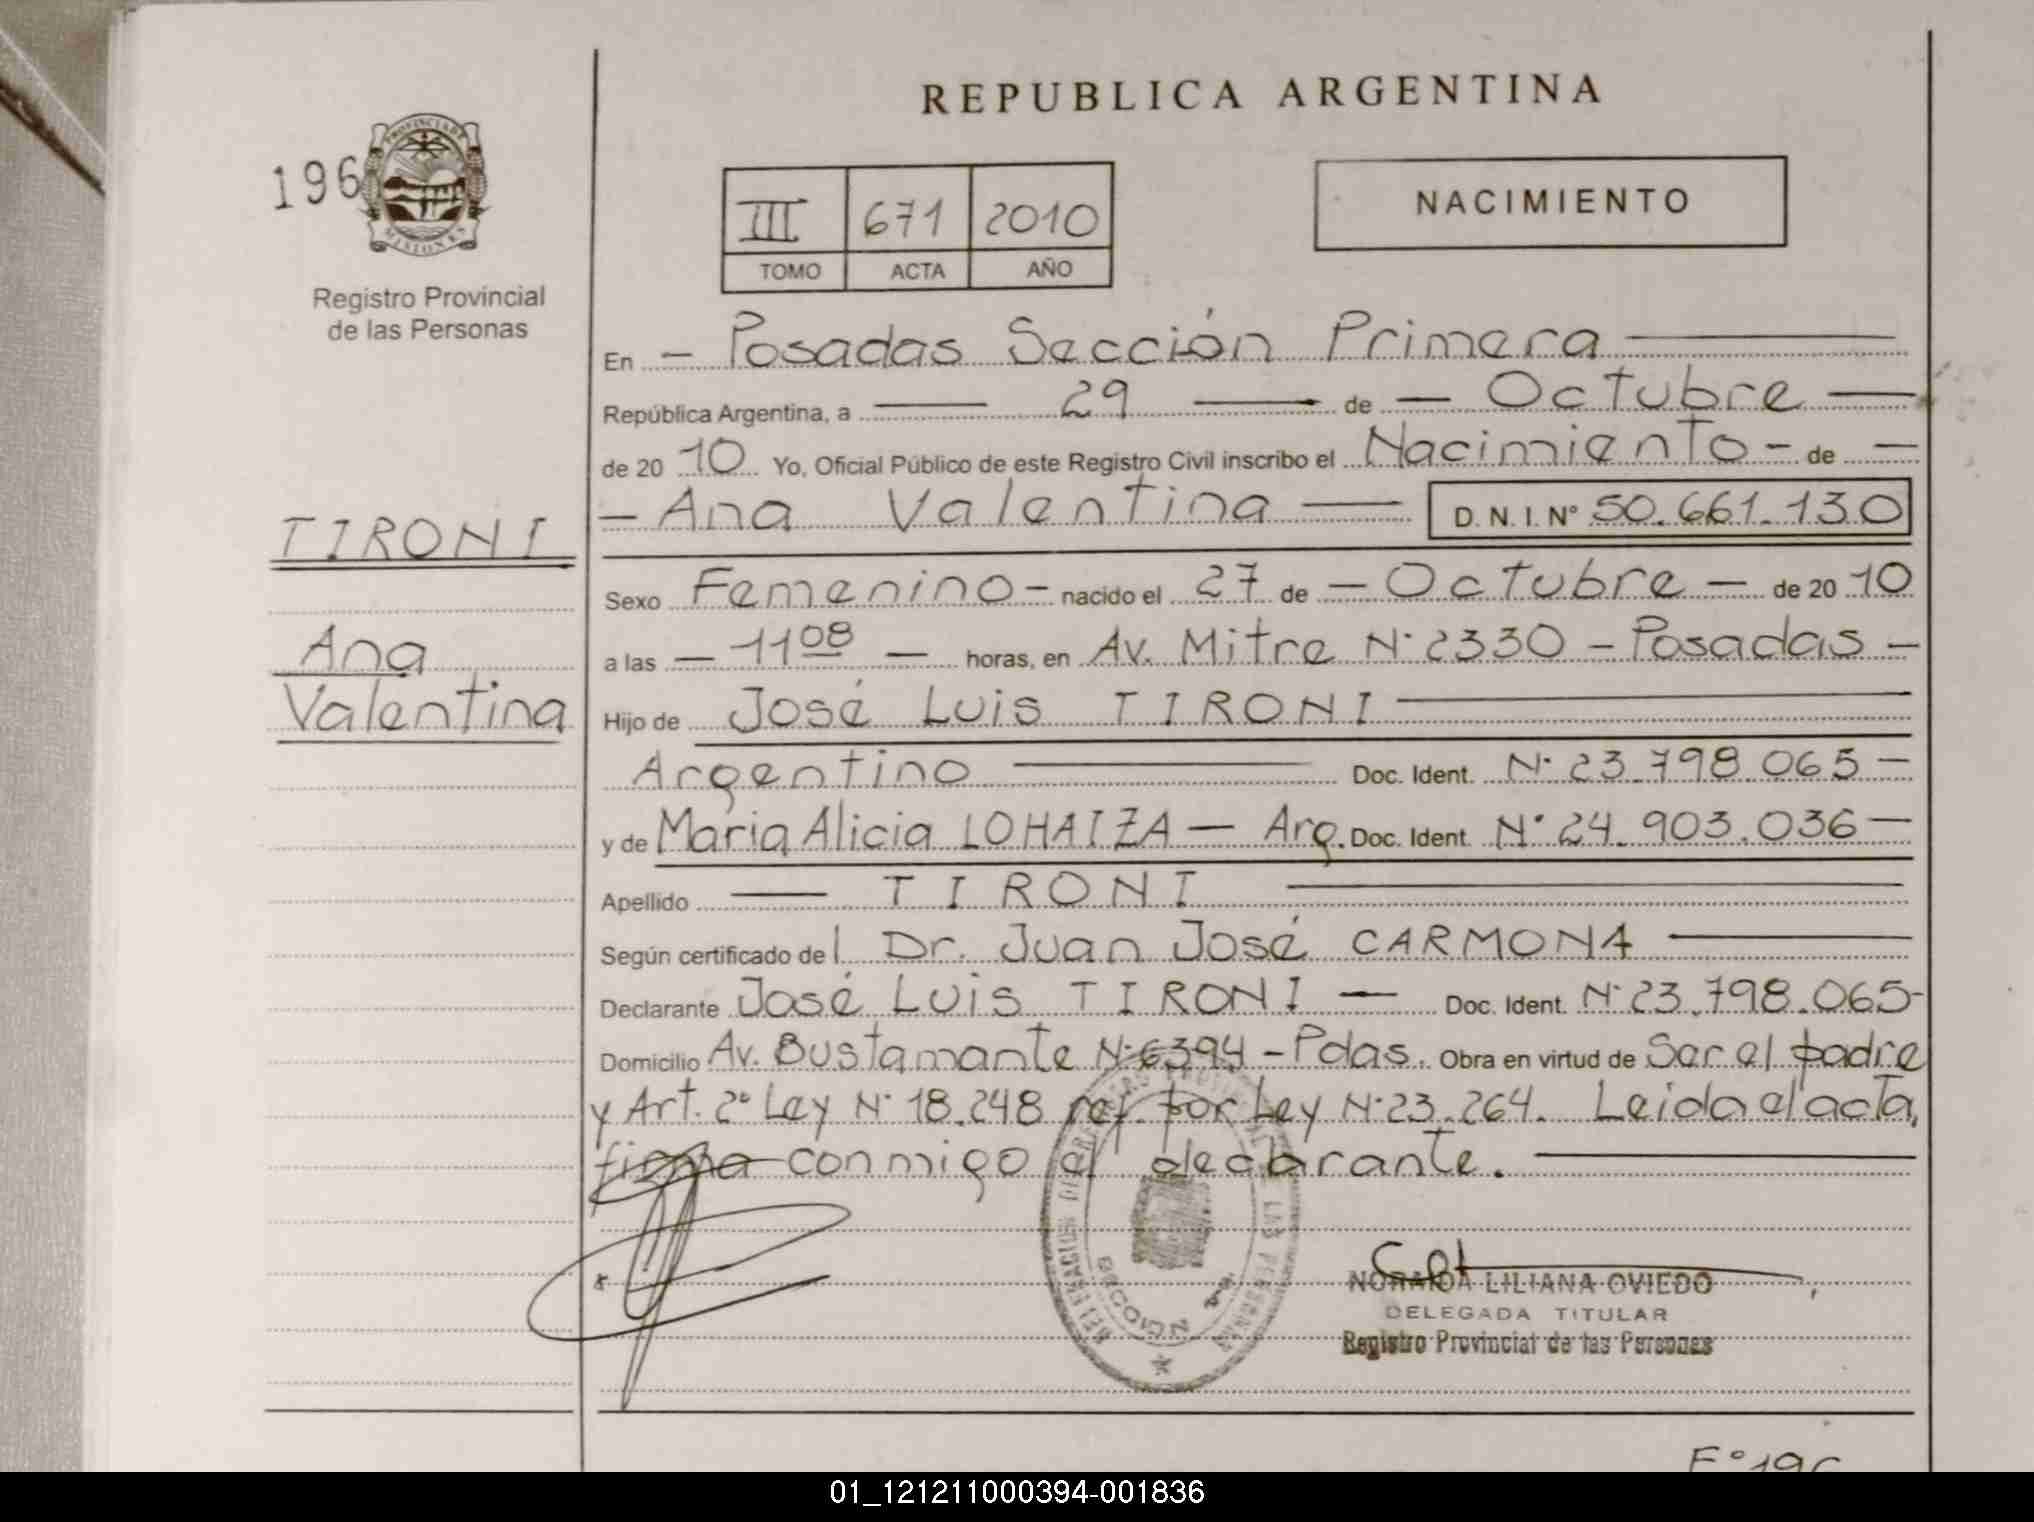 REPUBLICA ARGENTINA
196
PROVINCIA DE
MISIONES
Registro Provincial
de las Personas
III 671 2010
TOMO ACTA AÑO
NACIMIENTO
En - Posadas Sección Primera
República Argentina, a 29 de - Octubre
de 20 10 Yo, Oficial Público de este Registro Civil inscribo el Nacimiento - de -
- Ana Valentina D.N.I. Nº 50.661.130
TIRONI
Ana
Valentina
Sexo Femenino - nacido el 27 de - Octubre - de 20 10
a las - 11 08 - horas, en Av. Mitre Nº 2330 - Posadas -
Hijo de José Luis TIRONI
Argentino Doc. Ident. Nº 23.798.065 -
y de Maria Alicia LOHAIZA - Arg. Doc. Ident. Nº 24.903.036 -
Apellido TIRONI
Según certificado del Dr. Juan José CARMONA
Declarante José Luis TIRONI - Doc. Ident. Nº 23.798.065-
Domicilio Av. Bustamante Nº 6394 - Pdas. Obra en virtud de Ser el padre
y Art. 2º Ley Nº 18.248 ref. por Ley Nº 23.264. Leida el acta,
firma conmigo el declarante.
NORAIDA LILIANA OVIEDO
DELEGADA TITULAR
Registro Provincial de las Personas
Fº 196
01_121211000394-001836